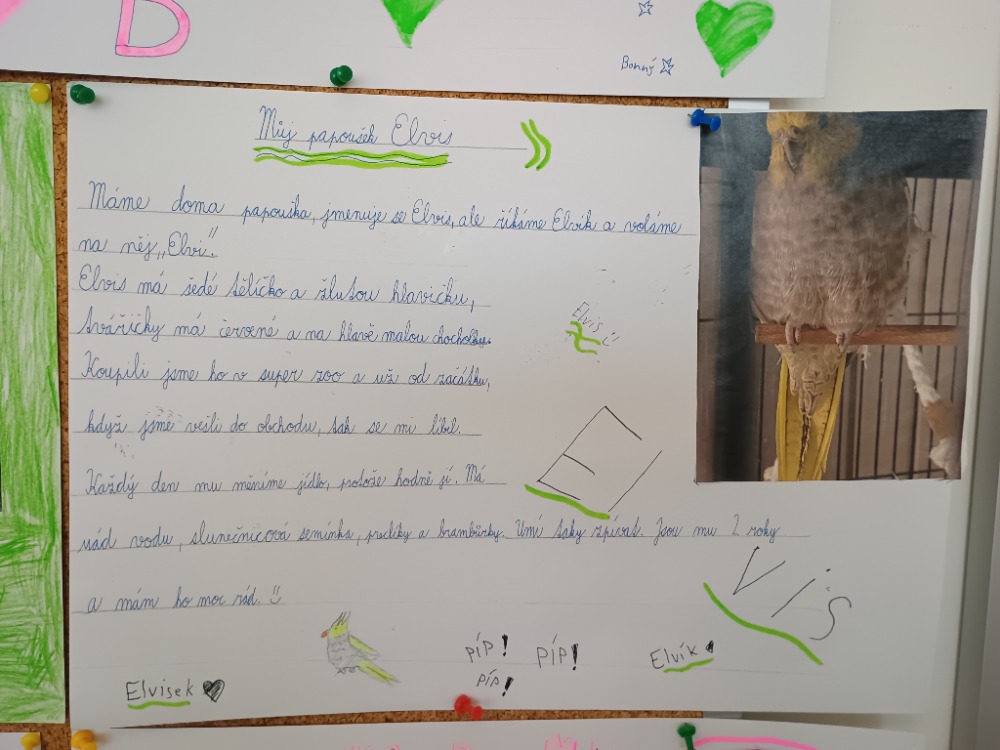 D
Bonný
Můj papoušek Elvis
Máme doma papouška, jmenuje se Elvis, ale říkáme Elvík a voláme
na něj „Elvi".
Elvis má šedé tělíčko a žlutou hlavičku,
tvářičky má červené a na hlavě malou chocholku.
Koupili jsme ho v super zoo a už od začátku,
když jsme vešli do obchodu, tak se mi líbil.
Každý den mu měníme jídlo, protože hodně jí. Má
rád vodu, slunečnicová semínka, preclíky a brambůrky. Umí taky zpívat. Jsou mu 2 roky
a mám ho moc rád.
Elvis
El
Vis
píp! píp!
píp!
Elvík
Elvisek